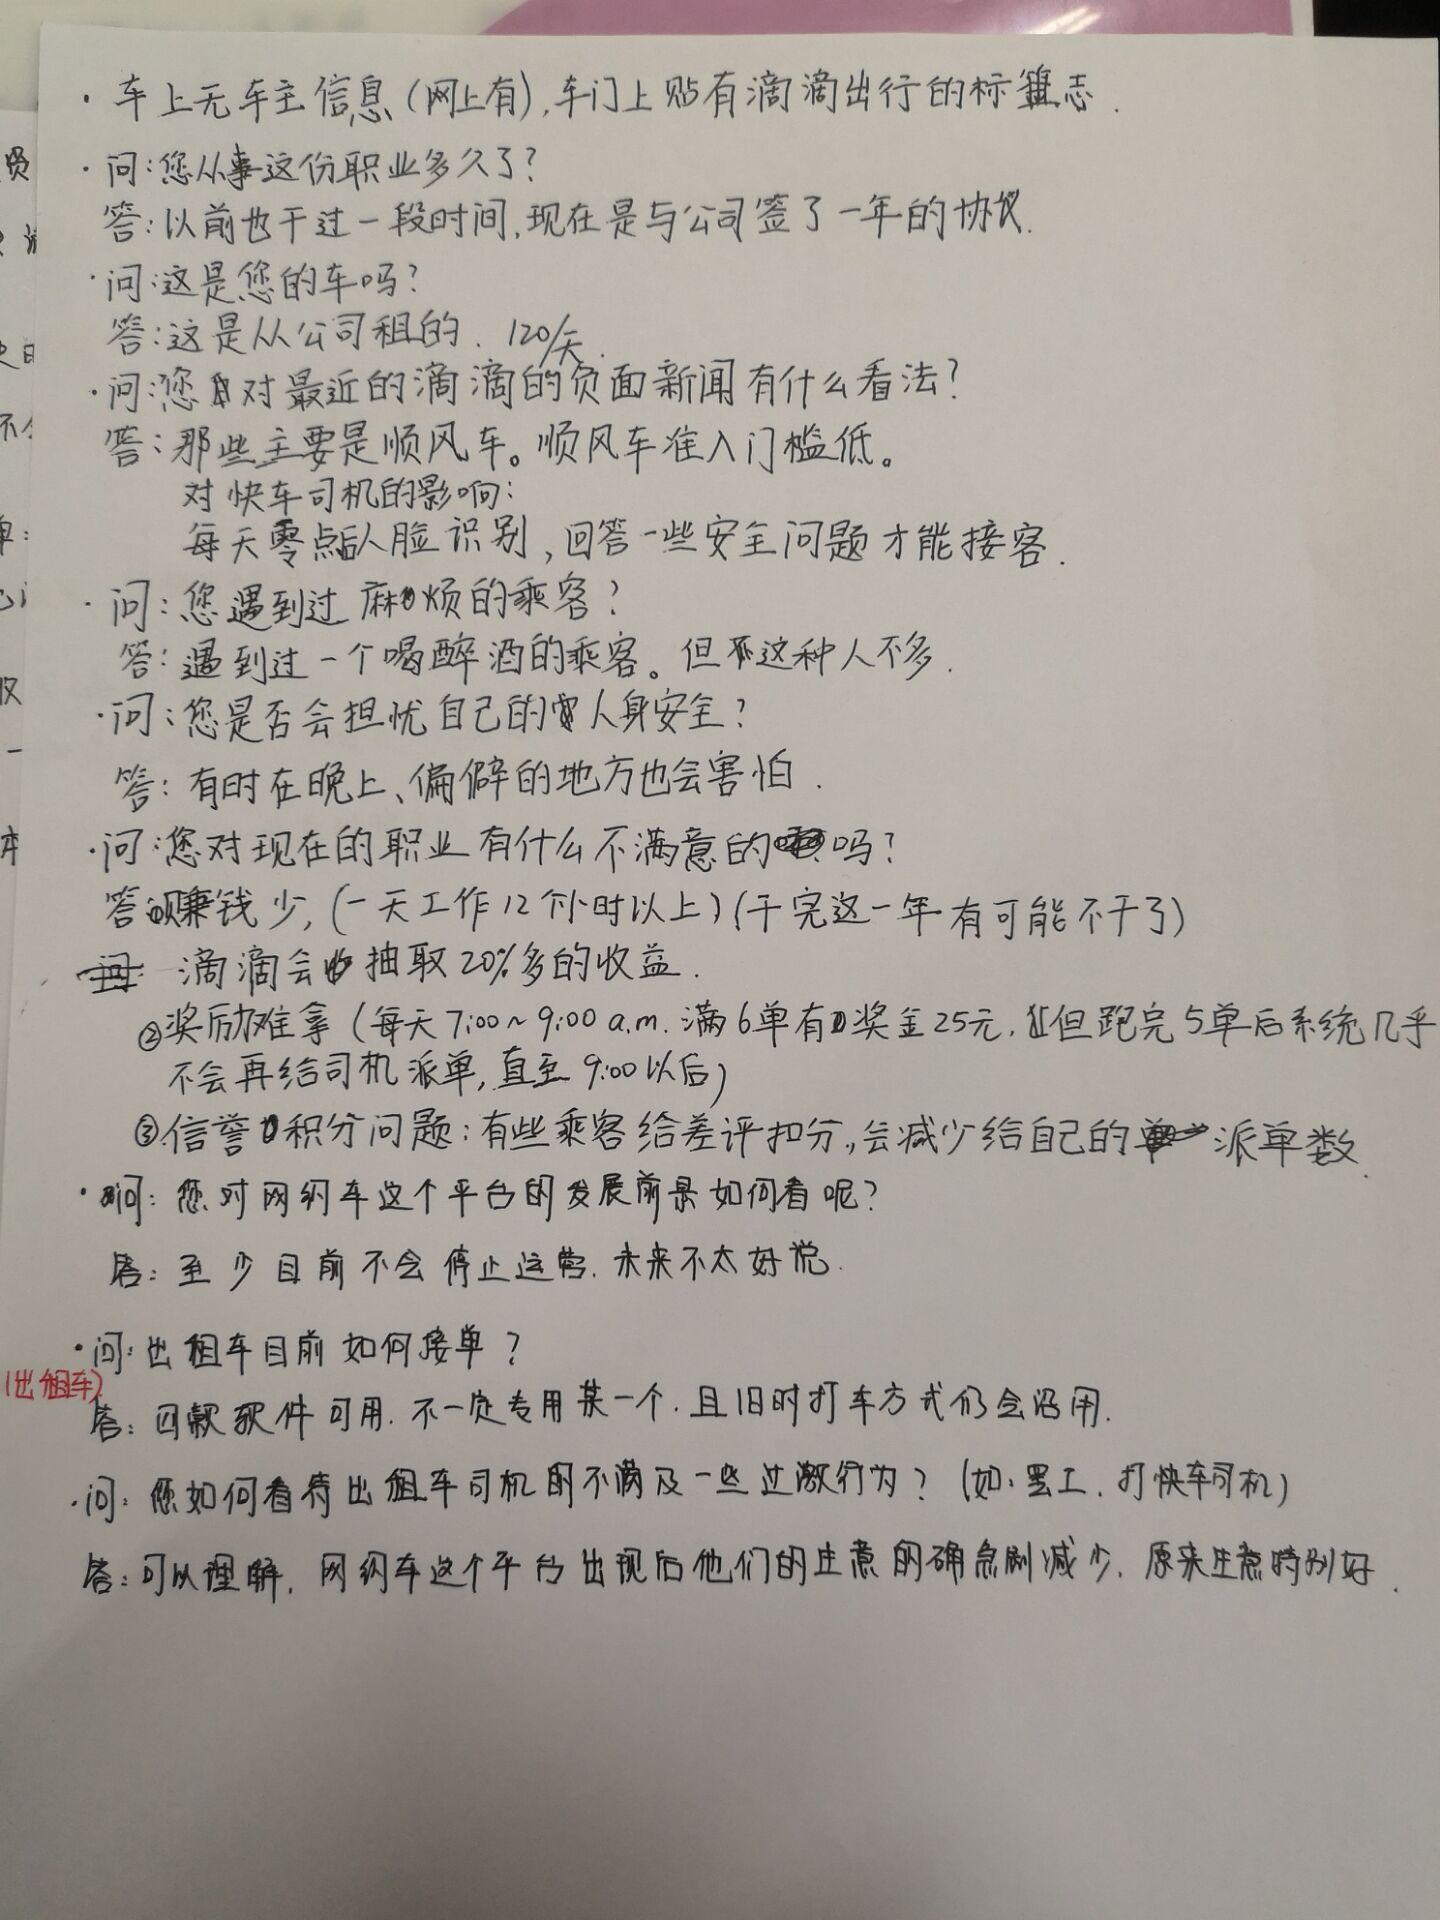 · 车上无车主信息(网上有),车门上贴有滴滴出行的标志.
· 问:您从事这份职业多久了?
答:以前也干过一段时间,现在是与公司签了一年的协议.
· 问:这是您的车吗?
答:这是从公司租的. 120/天.
· 问:您对最近的滴滴的负面新闻有什么看法?
答:那些主要是顺风车。顺风车准入门槛低。
对快车司机的影响:
每天零点后人脸识别,回答一些安全问题才能接客.
· 问:您遇到过麻烦的乘客?
答:遇到过一个喝醉酒的乘客。但这种人不多.
· 问:您是否会担忧自己的人身安全?
答:有时在晚上、偏僻的地方也会害怕.
· 问:您对现在的职业有什么不满意的吗?
答:①赚钱少,(一天工作12个小时以上)(干完这一年有可能不干了)
滴滴会抽取20%多的收益.
②奖励难拿(每天7:00~9:00 a.m.满6单有奖金25元,但跑完5单后系统几乎
不会再给司机派单,直至9:00以后)
③信誉积分问题:有些乘客给差评扣分,会减少给自己的派单数.
· 问:您对网约车这个平台的发展前景如何看呢?
答:至少目前不会停止运营.未来不太好说.
· 问:出租车目前如何接单?
(出租车)
答:四款软件可用.不一定专用某一个.且旧时打车方式仍会沿用.
· 问:您如何看待出租车司机的不满及一些过激行为?(如:罢工、打快车司机)
答:可以理解.网约车这个平台出现后他们的生意的确急剧减少.原来生意特别好.
不
收
一
本